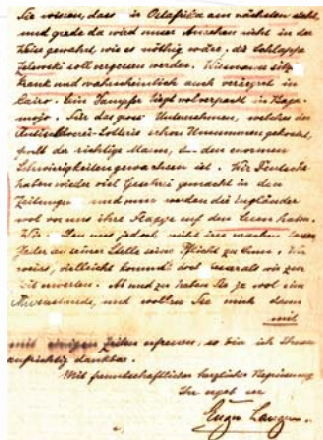 Sie wissen, dass in Ostafrika am nächsten steht
und grade da wird unser Ansehen nicht in der
Weise gewahrt wie es nöthig wäre, die Schlappe
Zelewski soll vergessen werden. Wissmann sitzt
krank und wahrscheinlich auch verzagt in
Kairo. Ein Dampfer liegt vollverpackt in Baga-
mojo. Für das ganze Unternehmen, welches der
Antisklaverei-Lotterie schon Unsummen gekostet,
fehlt der richtige Mann, der den enormen
Schwierigkeiten gewachsen ist. Wir Deutsche
haben wieder viel Geschrei gemacht in den
Zeitungen und nun werden die Engländer
wol vor uns ihre Flagge auf den Seen haben.
uns jedoch nicht irre machen
an seiner Stelle seine Pflicht zu thun. Wer
weiss, vielleicht kommt zur
zeit
Ab und zu haben Sie ja wol ein
und wollten Sie mich dann
mit
mit einigen Zeilen erfreuen, so bin ich Ihnen
aufrichtig dankbar.
Mit freundschaftlicher herzlicher Begrüssung
Ihr ergebener
Eugen Langen